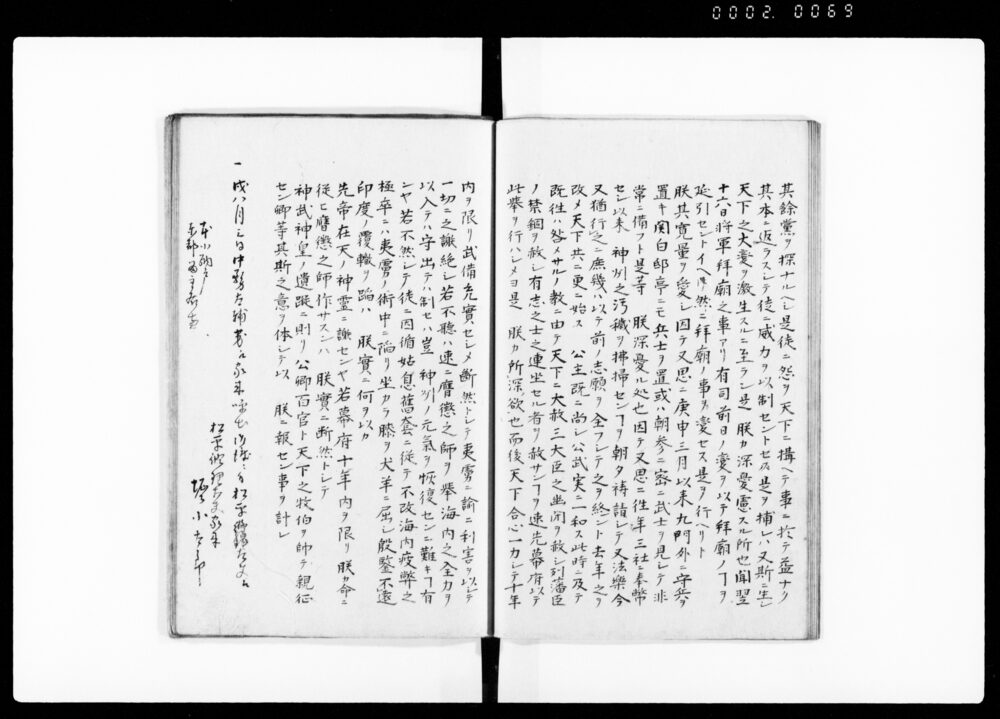 0002. 0069
其餘黨ヲ探ナルヘシ是徒ニ怨ヲ天下ニ搆ヘテ事ニ於テ益ナク
其本ニ返ラスシテ徒ニ威力ヲ以制セントセハ是ヲ捕レハ又斯ニ生シ
天下之大憂ヲ激生スルニ至ラン是 朕カ深憂慮スル所也聞翌
十六日将軍拜廟之事アリ有司前日ノ変ヲ以テ拜廟ノヿヲ
延引セントイヘ𪜈然ニ拜廟ノ事ヲ変セス是ヲ行ヘリト
朕其寛量ヲ愛シ因テ又思ニ庚申三月以来九門外ニ守兵ヲ
置キ関白邸亭ニモ兵士ヲ置或ハ朝参ニ密ニ武士ヲ見シテ非
常ニ備フト是等 朕深憂ル処也因テ又思ニ往年三社ニ奉幣
セシ以来 神州之汚穢ヲ拂掃センヿヲ朝夕祷請シテ又法樂今
又猶行之ニ庶幾ハ以テ前ノ志願ヲ全フシテ之ヲ終ント去年之ヲ
改メ天下共ニ更ニ始ス 公主既ニ尚シ公武実ニ一和ス此時ニ及テ
既往ハ咎メサルノ教ニ由テ天下ニ大赦シ三大臣之幽閉ヲ赦シ列藩臣
ノ禁錮ヲ赦シ有志之士之連坐セル者ヲ赦サンヿヲ速先幕府以テ
此擧ヲ行シメヨ是 朕カ所深欲也而後天下合心一力シテ十年
内ヲ限リ武備充實セシメ断然トシテ夷虜ニ諭ニ利害ヲ以シテ
一切ニ之謝絶シ若不聴ハ速ニ膺懲之師ヲ擧海内之全力ヲ
以入テハ守出テハ制セハ豈 神州ノ元氣ヲ恢復センニ難キヿ有
ンヤ若不然シテ徒ニ因循姑息舊套ニ従テ不改海内疲弊之
極卒ニハ夷虜ノ術中ニ陥リ坐カラ膝ヲ犬羊ニ屈シ殷鑒不遠
印度ノ覆轍ヲ蹈ハ 朕實ニ何ヲ以カ
先帝在天ノ神霊ニ謝センヤ若幕府十年内ヲ限リ朕カ命ニ
従ヒ膺懲之師作サスンハ 朕實ニ断然トシテ
神武神皇ノ遺蹤ニ則リ公卿百官ト天下之牧伯ヲ帥テ親征
セン卿等其斯之意ヲ体シテ以 朕ニ報セン事ヲ計レ
一 戌八月三日中務大輔
松平修理大夫家来
堀小太郎